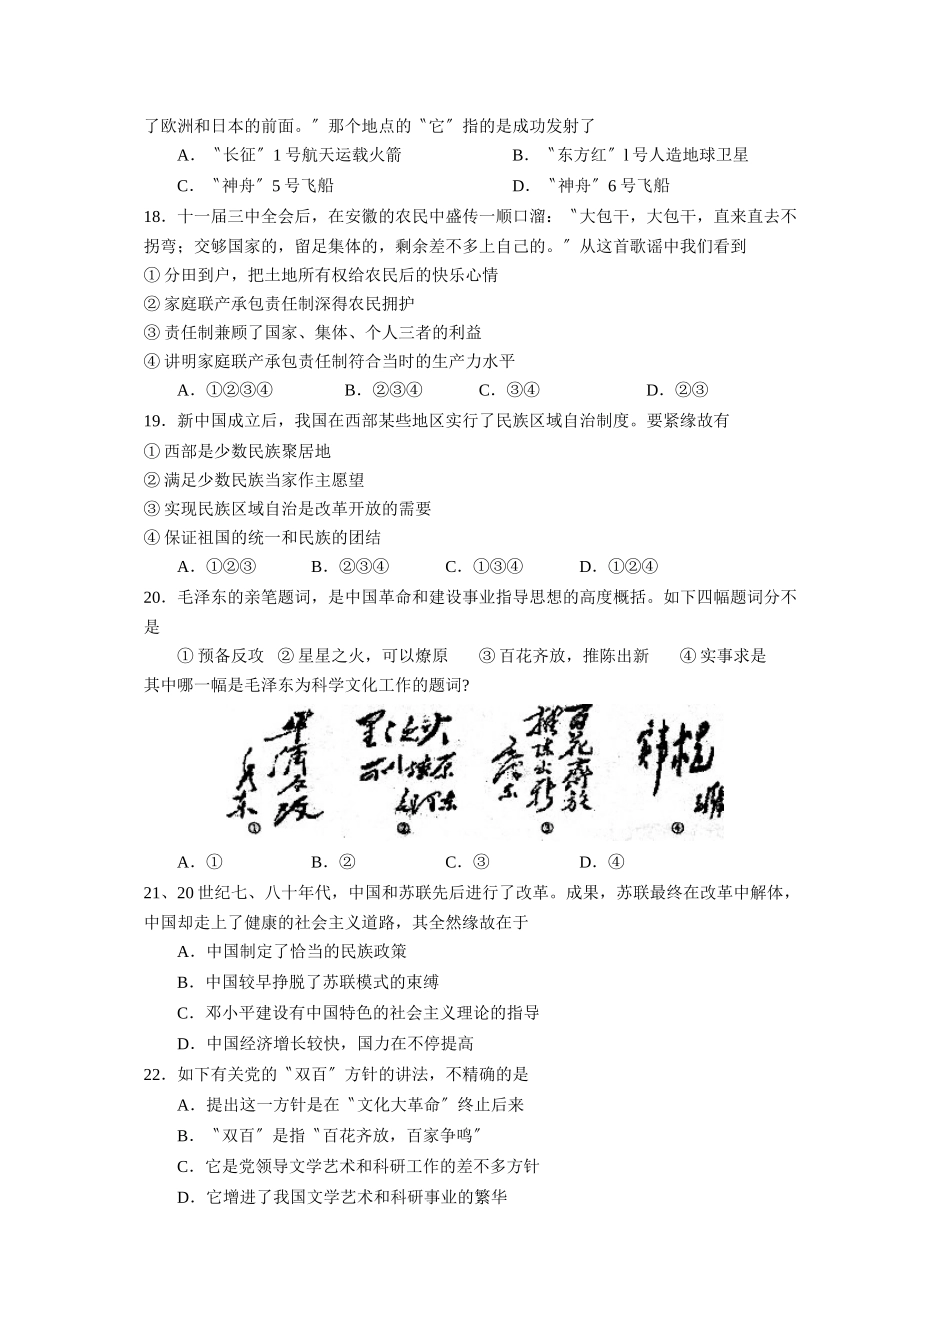 了欧洲和日本的前面。〞那个地点的〝它〞指的是成功发射了
A．〝长征〞1 号航天运载火箭 B．〝东方红〞l 号人造地球卫星
C．〝神舟〞5 号飞船 D．〝神舟〞6 号飞船
18．十一届三中全会后，在安徽的农民中盛传一顺口溜：〝大包干，大包干，直来直去不
拐弯；交够国家的，留足集体的，剩余差不多上自己的。〞从这首歌谣中我们看到
① 分田到户，把土地所有权给农民后的快乐心情
② 家庭联产承包责任制深得农民拥护
③ 责任制兼顾了国家、集体、个人三者的利益
④ 讲明家庭联产承包责任制符合当时的生产力水平
A．①②③④ B．②③④ C．③④ D．②③
19．新中国成立后，我国在西部某些地区实行了民族区域自治制度。要紧缘故有
① 西部是少数民族聚居地
② 满足少数民族当家作主愿望
③ 实现民族区域自治是改革开放的需要
④ 保证祖国的统一和民族的团结
A．①②③ B．②③④ C．①③④ D．①②④
20．毛泽东的亲笔题词，是中国革命和建设事业指导思想的高度概括。如下四幅题词分不
是
① 预备反攻 ② 星星之火，可以燎原 ③ 百花齐放，推陈出新 ④ 实事求是
其中哪一幅是毛泽东为科学文化工作的题词?
① ② ③ ④
A．① B．② C．③ D．④
21、20 世纪七、八十年代，中国和苏联先后进行了改革。成果，苏联最终在改革中解体，
中国却走上了健康的社会主义道路，其全然缘故在于
A．中国制定了恰当的民族政策
B．中国较早挣脱了苏联模式的束缚
C．邓小平建设有中国特色的社会主义理论的指导
D．中国经济增长较快，国力在不停提高
22．如下有关党的〝双百〞方针的讲法，不精确的是
A．提出这一方针是在〝文化大革命〞终止后来
B．〝双百〞是指〝百花齐放，百家争鸣〞
C．它是党领导文学艺术和科研工作的差不多方针
D．它增进了我国文学艺术和科研事业的繁华